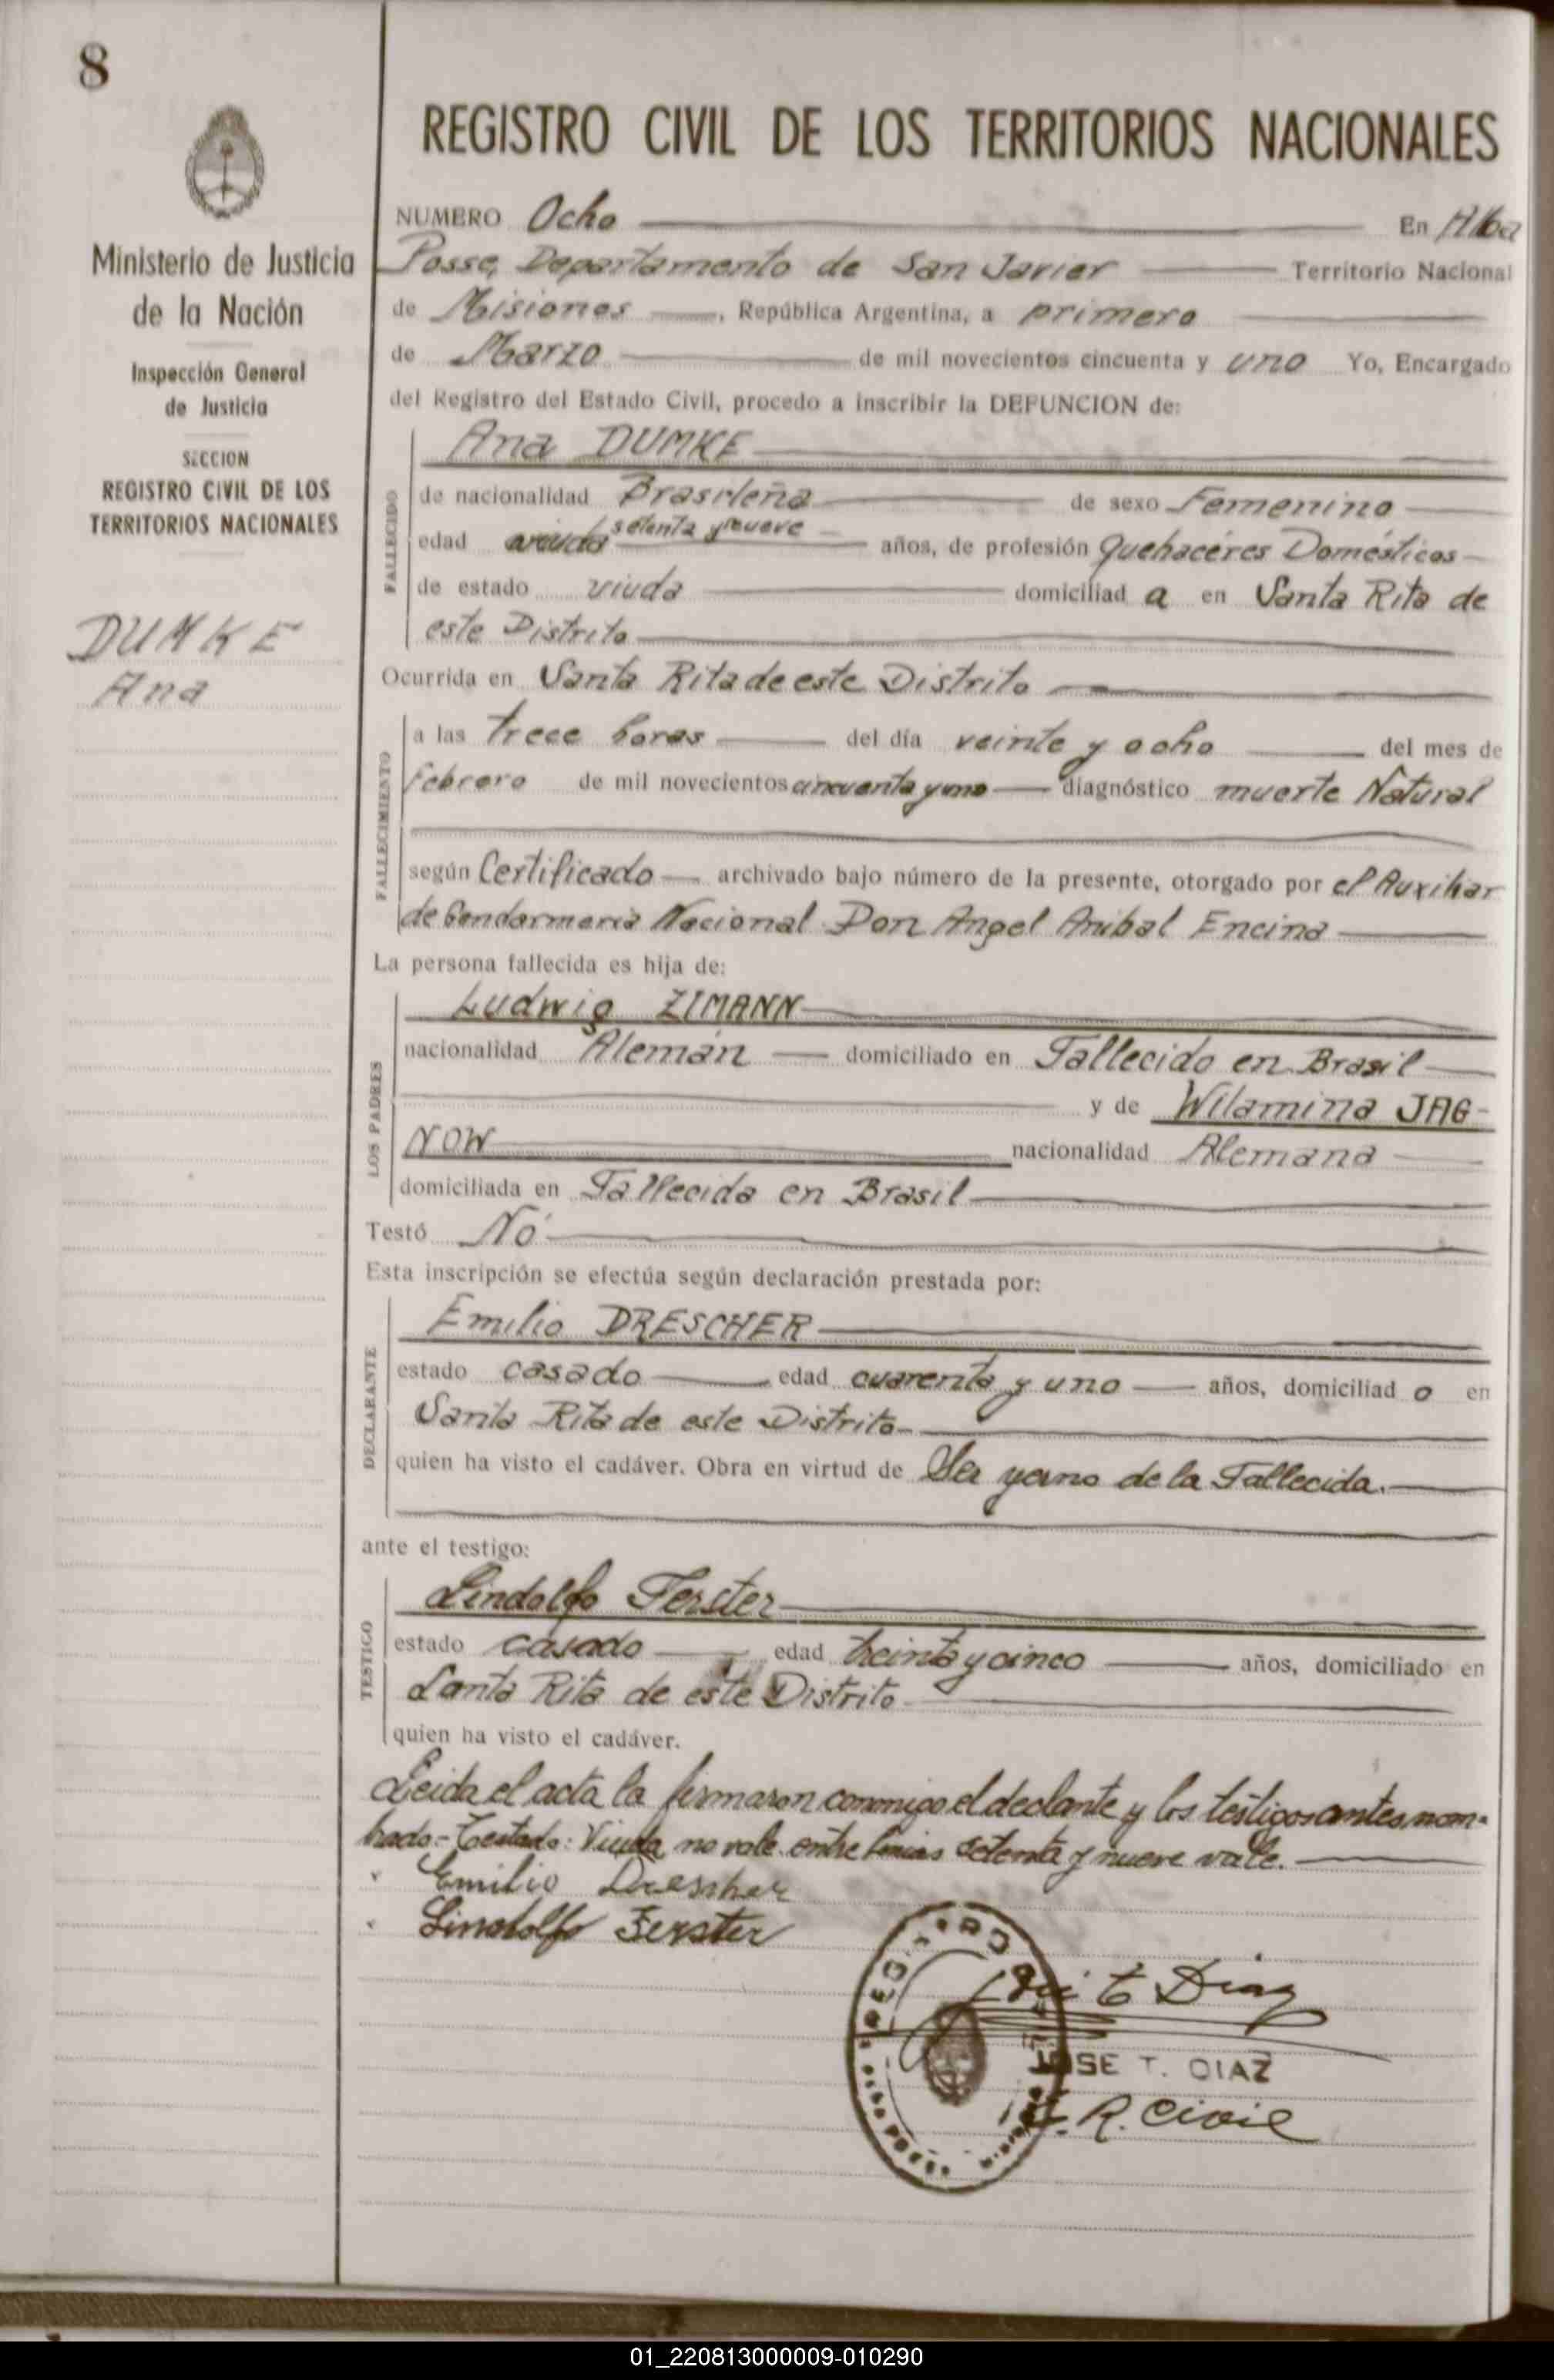 8
REGISTRO CIVIL DE LOS TERRITORIOS NACIONALES
Ministerio de Justicia
de la Nación
Inspección General
de Justicia
SECCION
REGISTRO CIVIL DE LOS
TERRITORIOS NACIONALES
DUMKE
Ana
NUMERO Ocho En Alba
Posse, Departamento de San Javier Territorio Nacional
de Misiones, República Argentina, a primero
de Marzo de mil novecientos cincuenta y uno Yo, Encargado
del Registro del Estado Civil, procedo a inscribir la DEFUNCION de:
Ana DUMKE
FALLECIDO
de nacionalidad Brasileña de sexo Femenino
setenta y nueve
edad viuda años, de profesión Quehacéres Domésticos
de estado viuda domiciliad a en Santa Rita de
este Distrito
Ocurrida en Santa Rita de este Distrito
FALLECIMIENTO
a las trece horas del día veinte y ocho del mes de
febrero de mil novecientos cincuenta y uno diagnóstico muerte Natural
según Certificado archivado bajo número de la presente, otorgado por el Auxiliar
de Gendarmeria Nacional Don Angel Anibal Encina
La persona fallecida es hija de:
LOS PADRES
Ludwig ZIMANN
nacionalidad Alemán domiciliado en Fallecido en Brasil
y de Wilamina JAG-
NOW nacionalidad Alemana
domiciliada en Fallecida en Brasil
Testó No
Esta inscripción se efectúa según declaración prestada por:
DECLARANTE
Emilio DRESCHER
estado casado edad cuarenta y uno años, domiciliad o en
Santa Rita de este Distrito
quien ha visto el cadáver. Obra en virtud de Ser yerno de la Fallecida.
ante el testigo:
TESTIGO
Lindolfo Ferster
estado casado edad treinta y cinco años, domiciliado en
Santa Rita de este Distrito
quien ha visto el cadáver.
Leida el acta la firmaron conmigo el declante y los testigos antes nom-
brado.- Testado: Viuda no vale entre lineas setenta y nueve vale.
Emilio Drescher
Lindolfo Ferster
REGISTRO
ALBA POSSE
José T Diaz
JOSE T. DIAZ
E. R. Civil
01_220813000009-010290